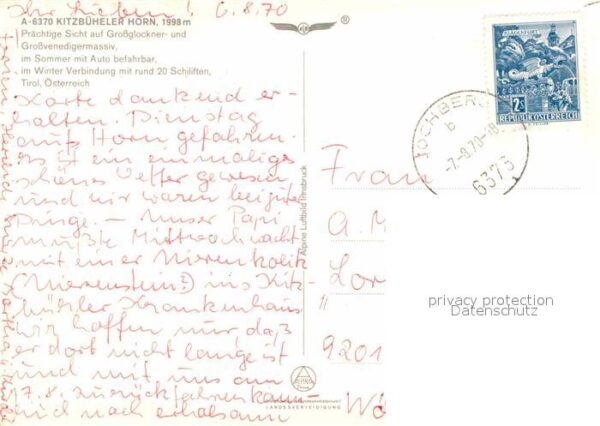 Ihr Lieben! 6.8.70
A-6370 KITZBÜHELER HORN, 1998 m
Prächtige Sicht auf Großglockner- und
Großvenedigermassiv,
im Sommer mit Auto befahrbar,
im Winter Verbindung mit rund 20 Schiliften,
Tirol, Österreich
Karte dankend er-
halten. Dienstag
aufs Horn gefahren.
Es ist ein einmalig
schönes Wetter gewesen
und wir waren bei guter
Dinge. – Unser Papi
mußte Mittwoch nacht
mit einer Nierenkolik
(Nierenstein?) ins Kitz-
bühler Krankenhaus
wir hoffen nur daß
er dort nicht lange ist
und mit uns am
17.8. zurückfahren kann
und nach
Alpine Luftbild Innsbruck
LANDESVERTEIDIGUNG
KLAGENFURT
2S
REPUBLIK ÖSTERREICH
JOCHBERG
b
-7.-8.70-18
6373
Frau
A. M
Lor
9201
privacy protection
Datenschutz